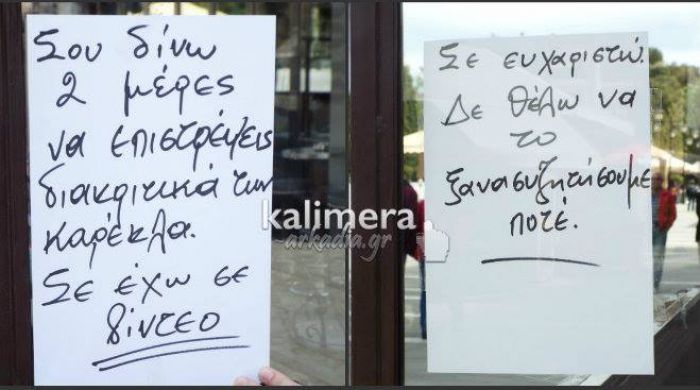 Σου δίνω
2 μέρες
να επιστρέψεις
διακριτικά την
καρέκλα.
Σε έχω σε
βίντεο
Σε ευχαριστώ.
Δε θέλω να
το
ξανασυζητήσουμε
ποτέ.
kalimera
arkadia.gr